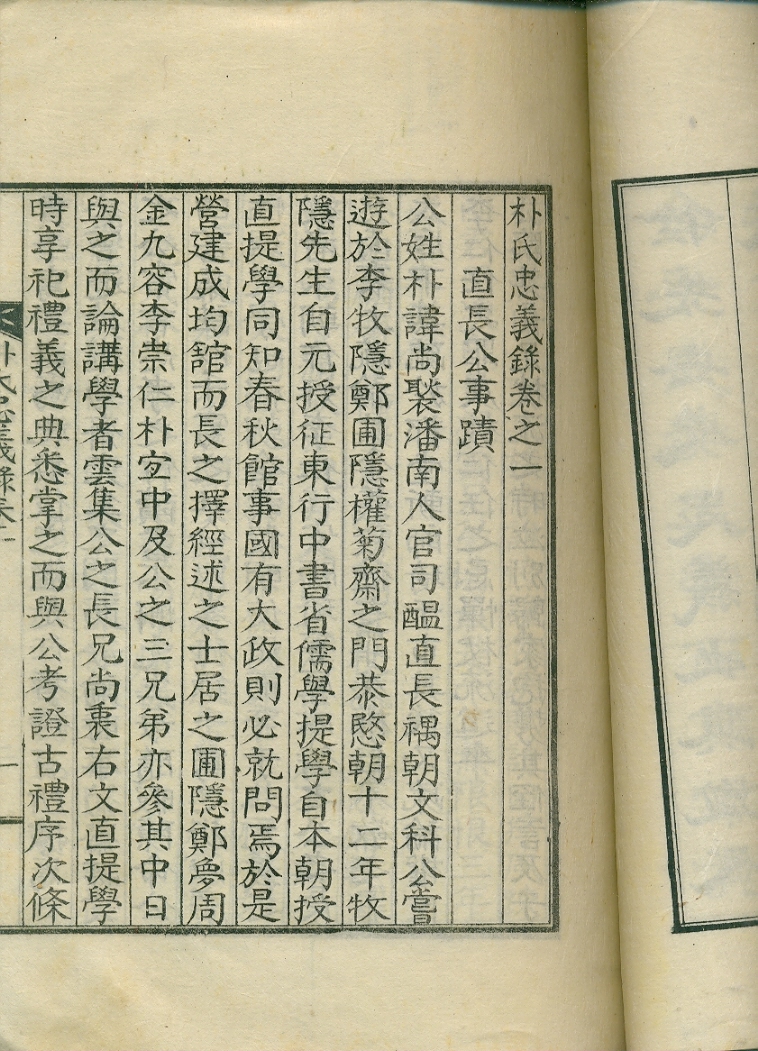 朴氏忠義錄卷之一
直長公事蹟
公姓朴諱尚褧潘南人官司醞直長禑朝文科公嘗
遊於李牧隱鄭圃隱權菊齋之門恭愍朝十二年牧
隱先生自元授征東行中書省儒學提學自本朝授
直提學同知春秋館事國有大政則必就問焉於是
營建成均舘而長之擇經述之士居之圃隱鄭夢周
金九容李崇仁朴宜中及公之三兄弟亦參其中日
與之而論講學者雲集公之長兄尚衷右文直提學
時享祀禮義之典悉掌之而與公考證古禮序次條
朴氏忠義錄卷一
一